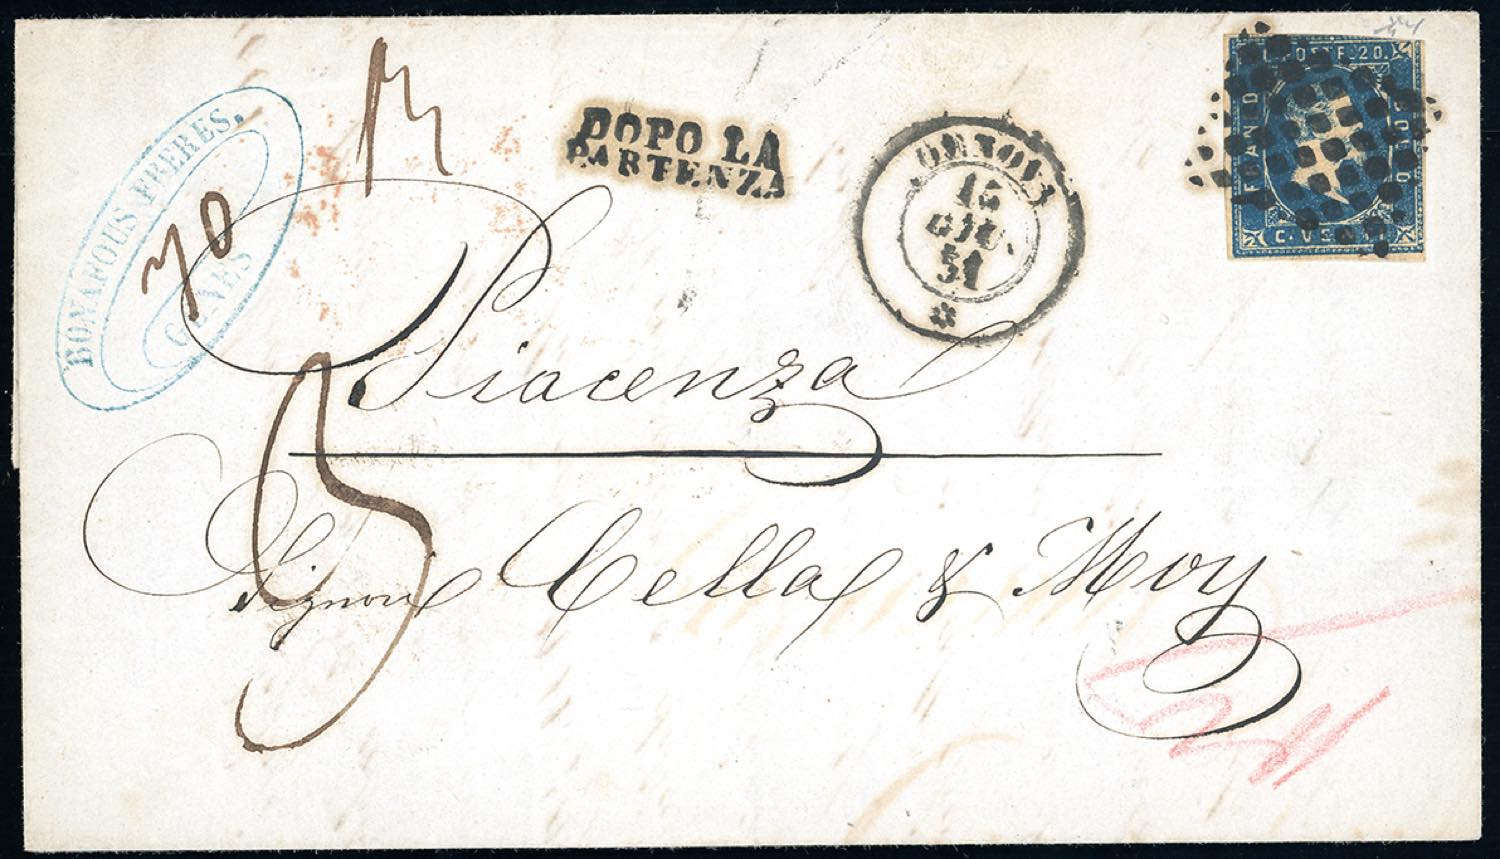 BONAFOUS FRERES.
GENES
70
DOPO LA
PARTENZA
GENOVA
15
GIU.
51
C. POSTE 20.
FRANCO
BOLLO
C. VENTI
Piacenza
5
Signori Cella & Moy